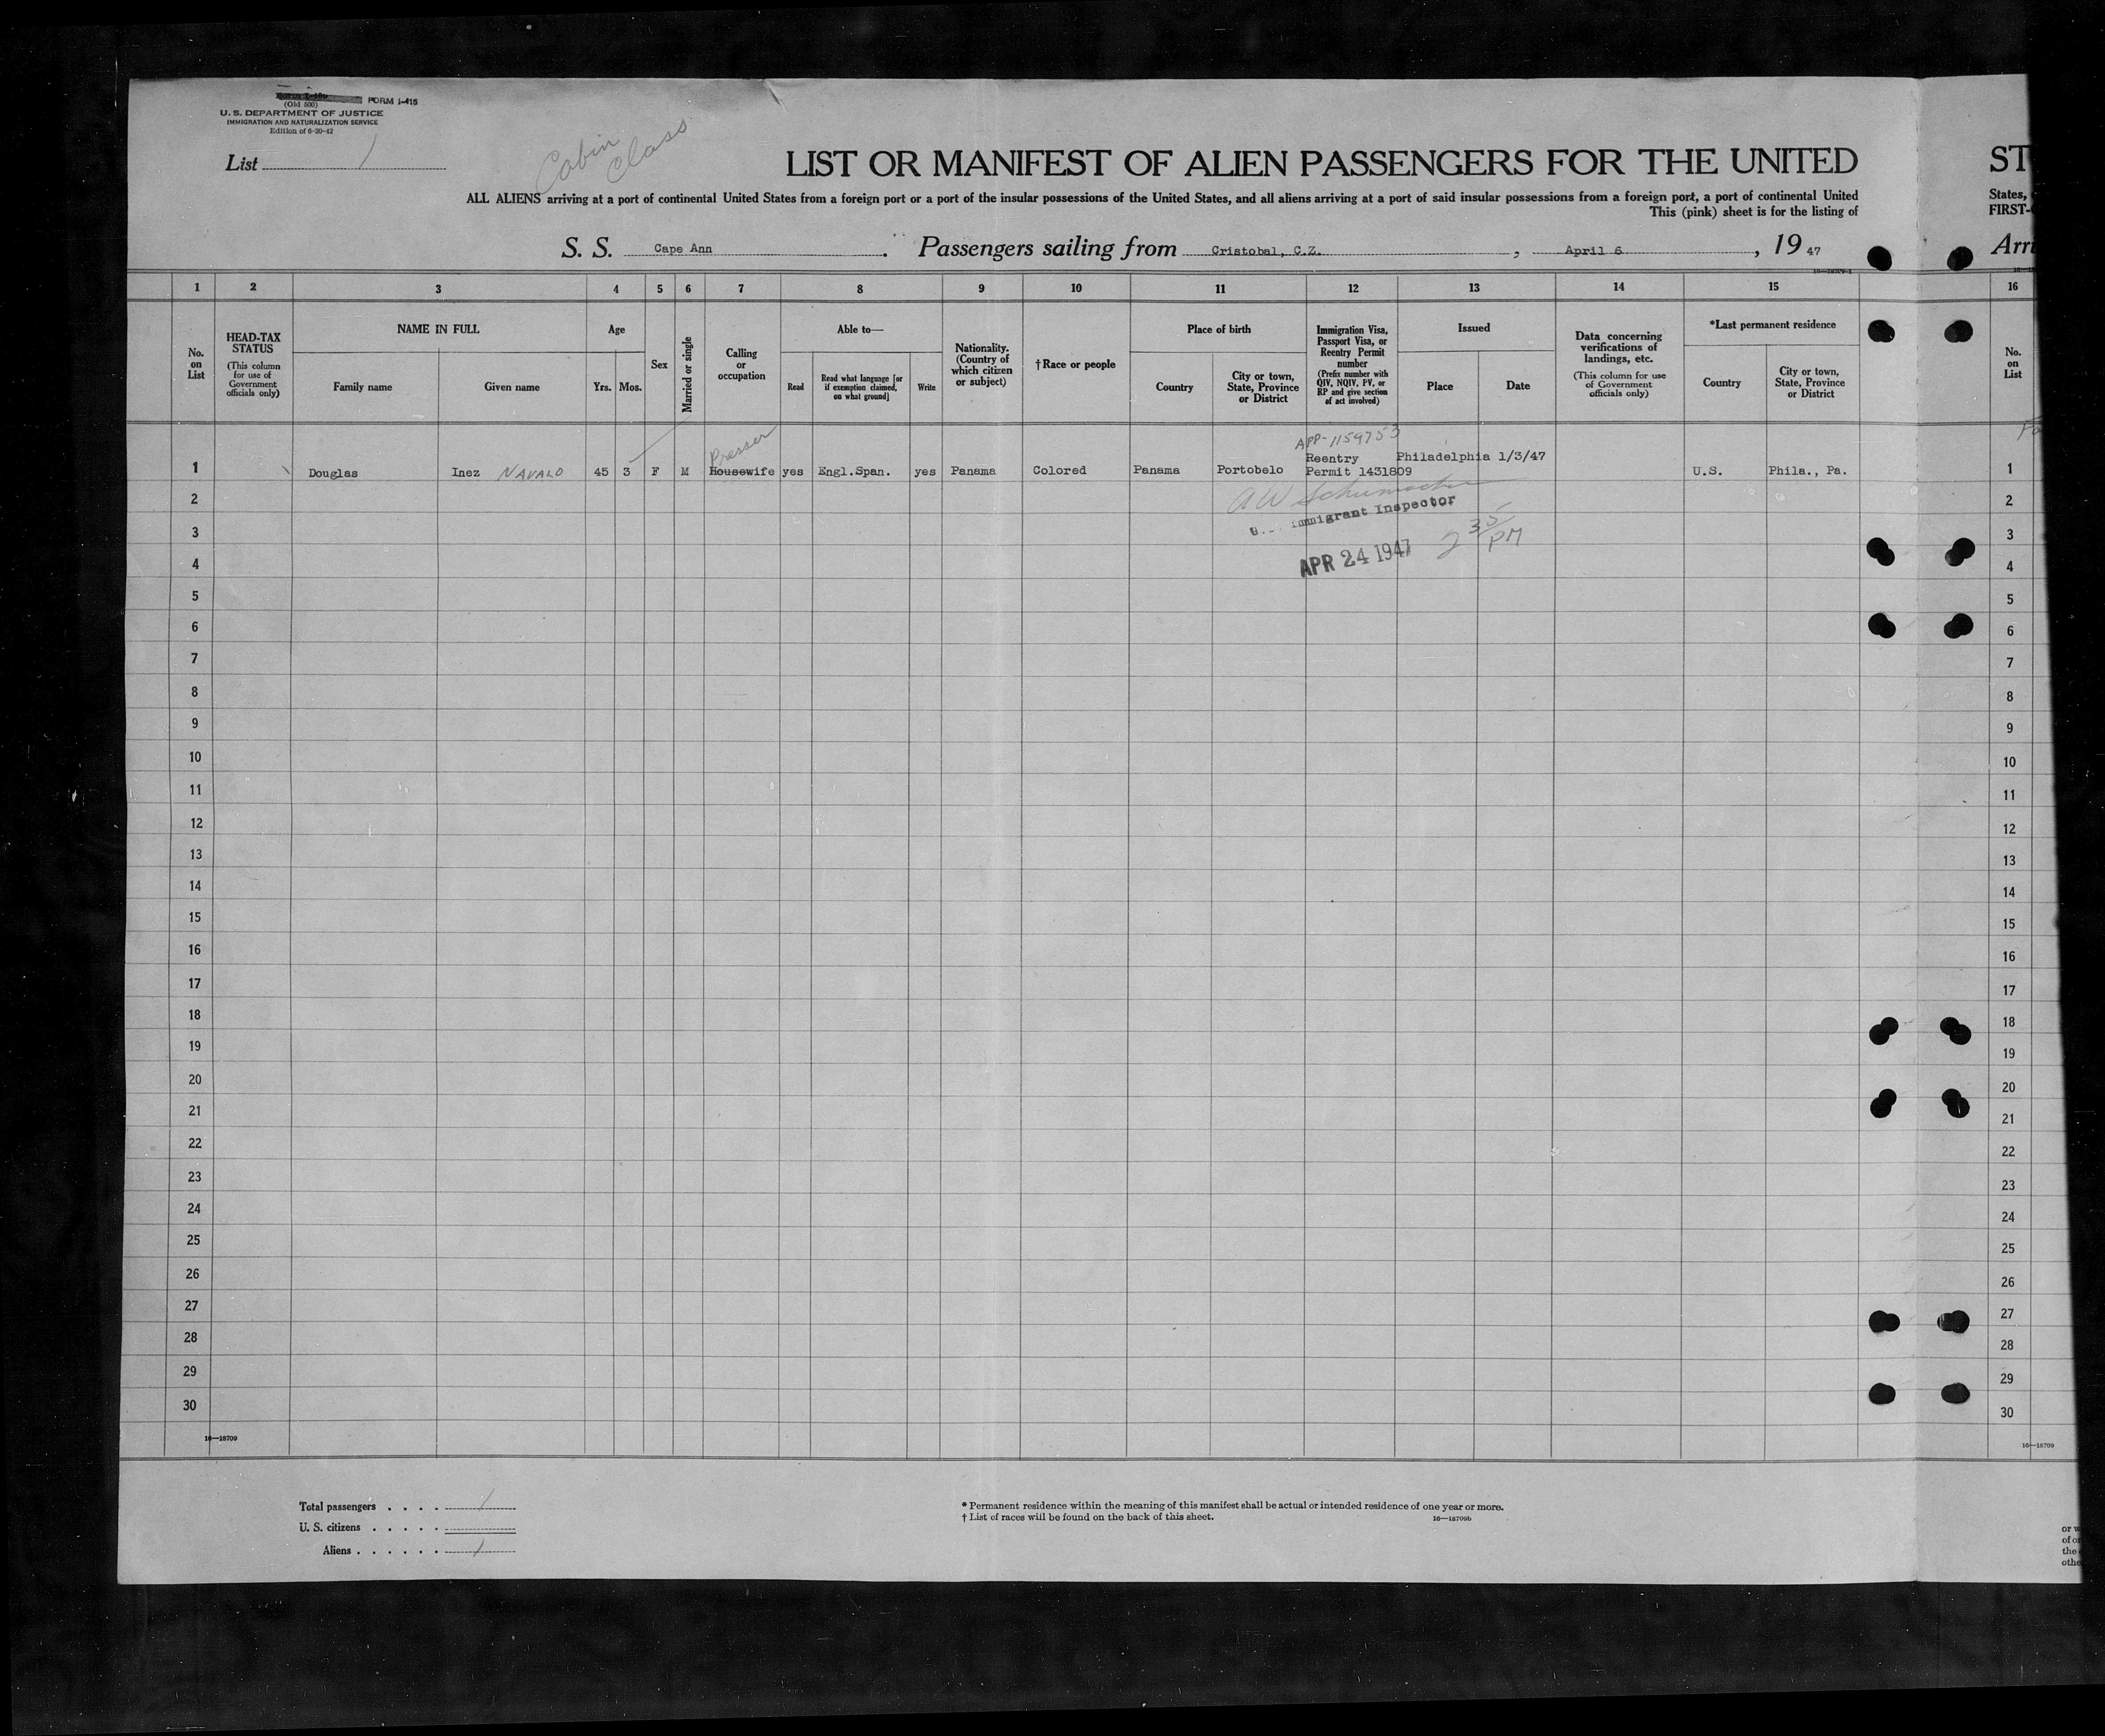 FORM I-415
(Old 500)
U. S. DEPARTMENT OF JUSTICE
IMMIGRATION AND NATURALIZATION SERVICE
Edition of 6-20-42
List 1
Cabin
Class
LIST OR MANIFEST OF ALIEN PASSENGERS FOR THE UNITED
ST
ALL ALIENS arriving at a port of continental United States from a foreign port or a port of the insular possessions of the United States, and all aliens arriving at a port of said insular possessions from a foreign port, a port of continental United
States,
This (pink) sheet is for the listing of
FIRST-
S. S. Cape Ann . Passengers sailing from Cristobal, C.Z. , April 6 , 19 47
Arri
1 2 3 4 5 6 7 8 9 10 11 12 13 14 15 16
No. on List
HEAD-TAX STATUS
(This column for use of Government officials only)
NAME IN FULL
Family name
Given name
Age
Yrs. Mos.
Sex
Married or single
Calling or occupation
Able to—
Read
Read what language [or if exemption claimed, on what ground]
Write
Nationality. (Country of which citizen or subject)
†Race or people
Place of birth
Country
City or town, State, Province or District
Immigration Visa, Passport Visa, or Reentry Permit number
(Prefix number with QIV, NQIV, PV, or RP and give section of act involved)
Issued
Place
Date
Data concerning verifications of landings, etc.
(This column for use of Government officials only)
*Last permanent residence
Country
City or town, State, Province or District
No. on List
Presser
APP-1159753
1 Douglas Inez NAVALO 45 3 F M Housewife yes Engl.Span. yes Panama Colored Panama Portobelo Reentry Permit 1431809 Philadelphia 1/3/47 U.S. Phila., Pa. 1
2 AW Schumacher 2
Immigrant Inspector
3 2 35 PM 3
4 APR 24 1947 4
5 5
6 6
7 7
8 8
9 9
10 10
11 11
12 12
13 13
14 14
15 15
16 16
17 17
18 18
19 19
20 20
21 21
22 22
23 23
24 24
25 25
26 26
27 27
28 28
29 29
30 30
16—18709
16—18709
Total passengers . . . . 1
U. S. citizens . . . . .
Aliens . . . . . . 1
* Permanent residence within the meaning of this manifest shall be actual or intended residence of one year or more.
† List of races will be found on the back of this sheet.
16—18709b
or w
of or
the
othe